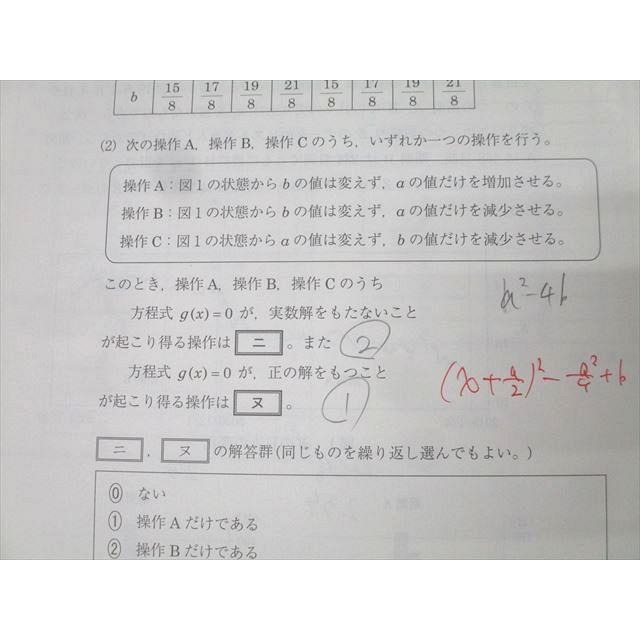 b 15/8 17/8 19/8 21/8 15/8 17/8 19/8 21/8
(2) 次の操作A，操作B，操作Cのうち，いずれか一つの操作を行う。
操作A：図1の状態からbの値は変えず，aの値だけを増加させる。
操作B：図1の状態からbの値は変えず，aの値だけを減少させる。
操作C：図1の状態からaの値は変えず，bの値だけを減少させる。
このとき，操作A，操作B，操作Cのうち
方程式 g(x)=0 が，実数解をもたないこと
が起こり得る操作は ニ 。また ②
方程式 g(x)=0 が，正の解をもつこと
が起こり得る操作は ヌ 。 ①
a²-4b
(x+a/2)²-a²/4+b
ニ ， ヌ の解答群(同じものを繰り返し選んでもよい。)
⓪ ない
① 操作Aだけである
② 操作Bだけである